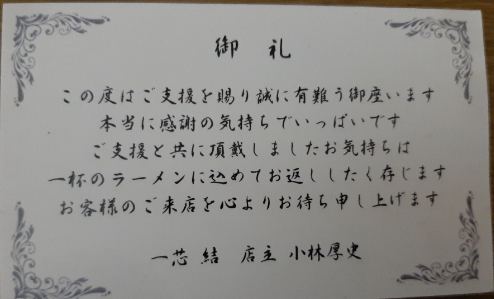 御礼
この度はご支援を賜り誠に有難う御座います
本当に感謝の気持ちでいっぱいです
ご支援と共に頂戴しましたお気持ちは
一杯のラーメンに込めてお返ししたく存じます
お客様のご来店を心よりお待ち申し上げます
一芯 結 店主 小林厚史